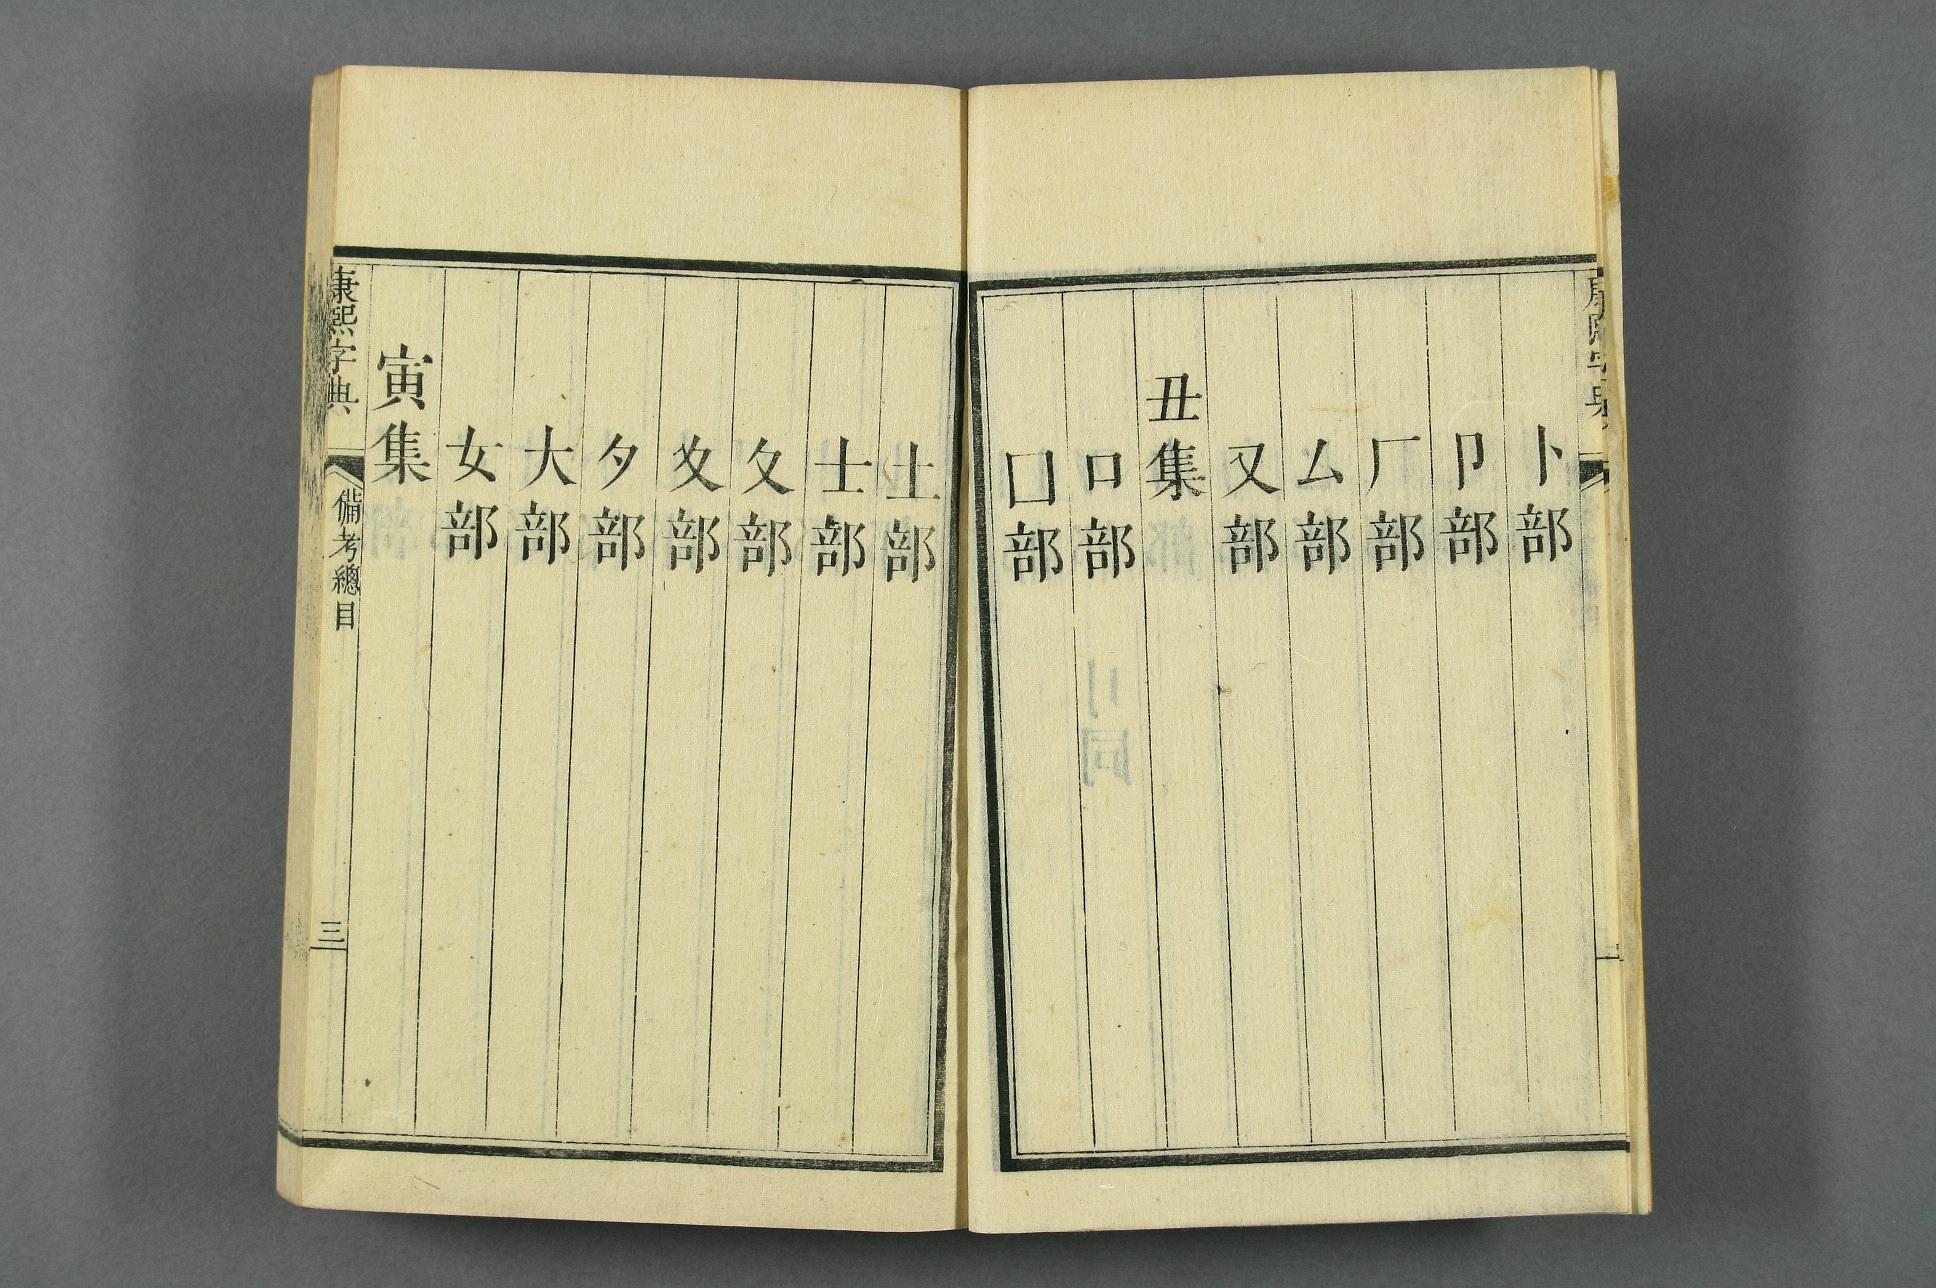 康熙字典
卜部
卩部
厂部
厶部
又部
丑集
口部
囗部
土部
士部
夂部
夊部
夕部
大部
女部
寅集
康熙字典
備考總目
三